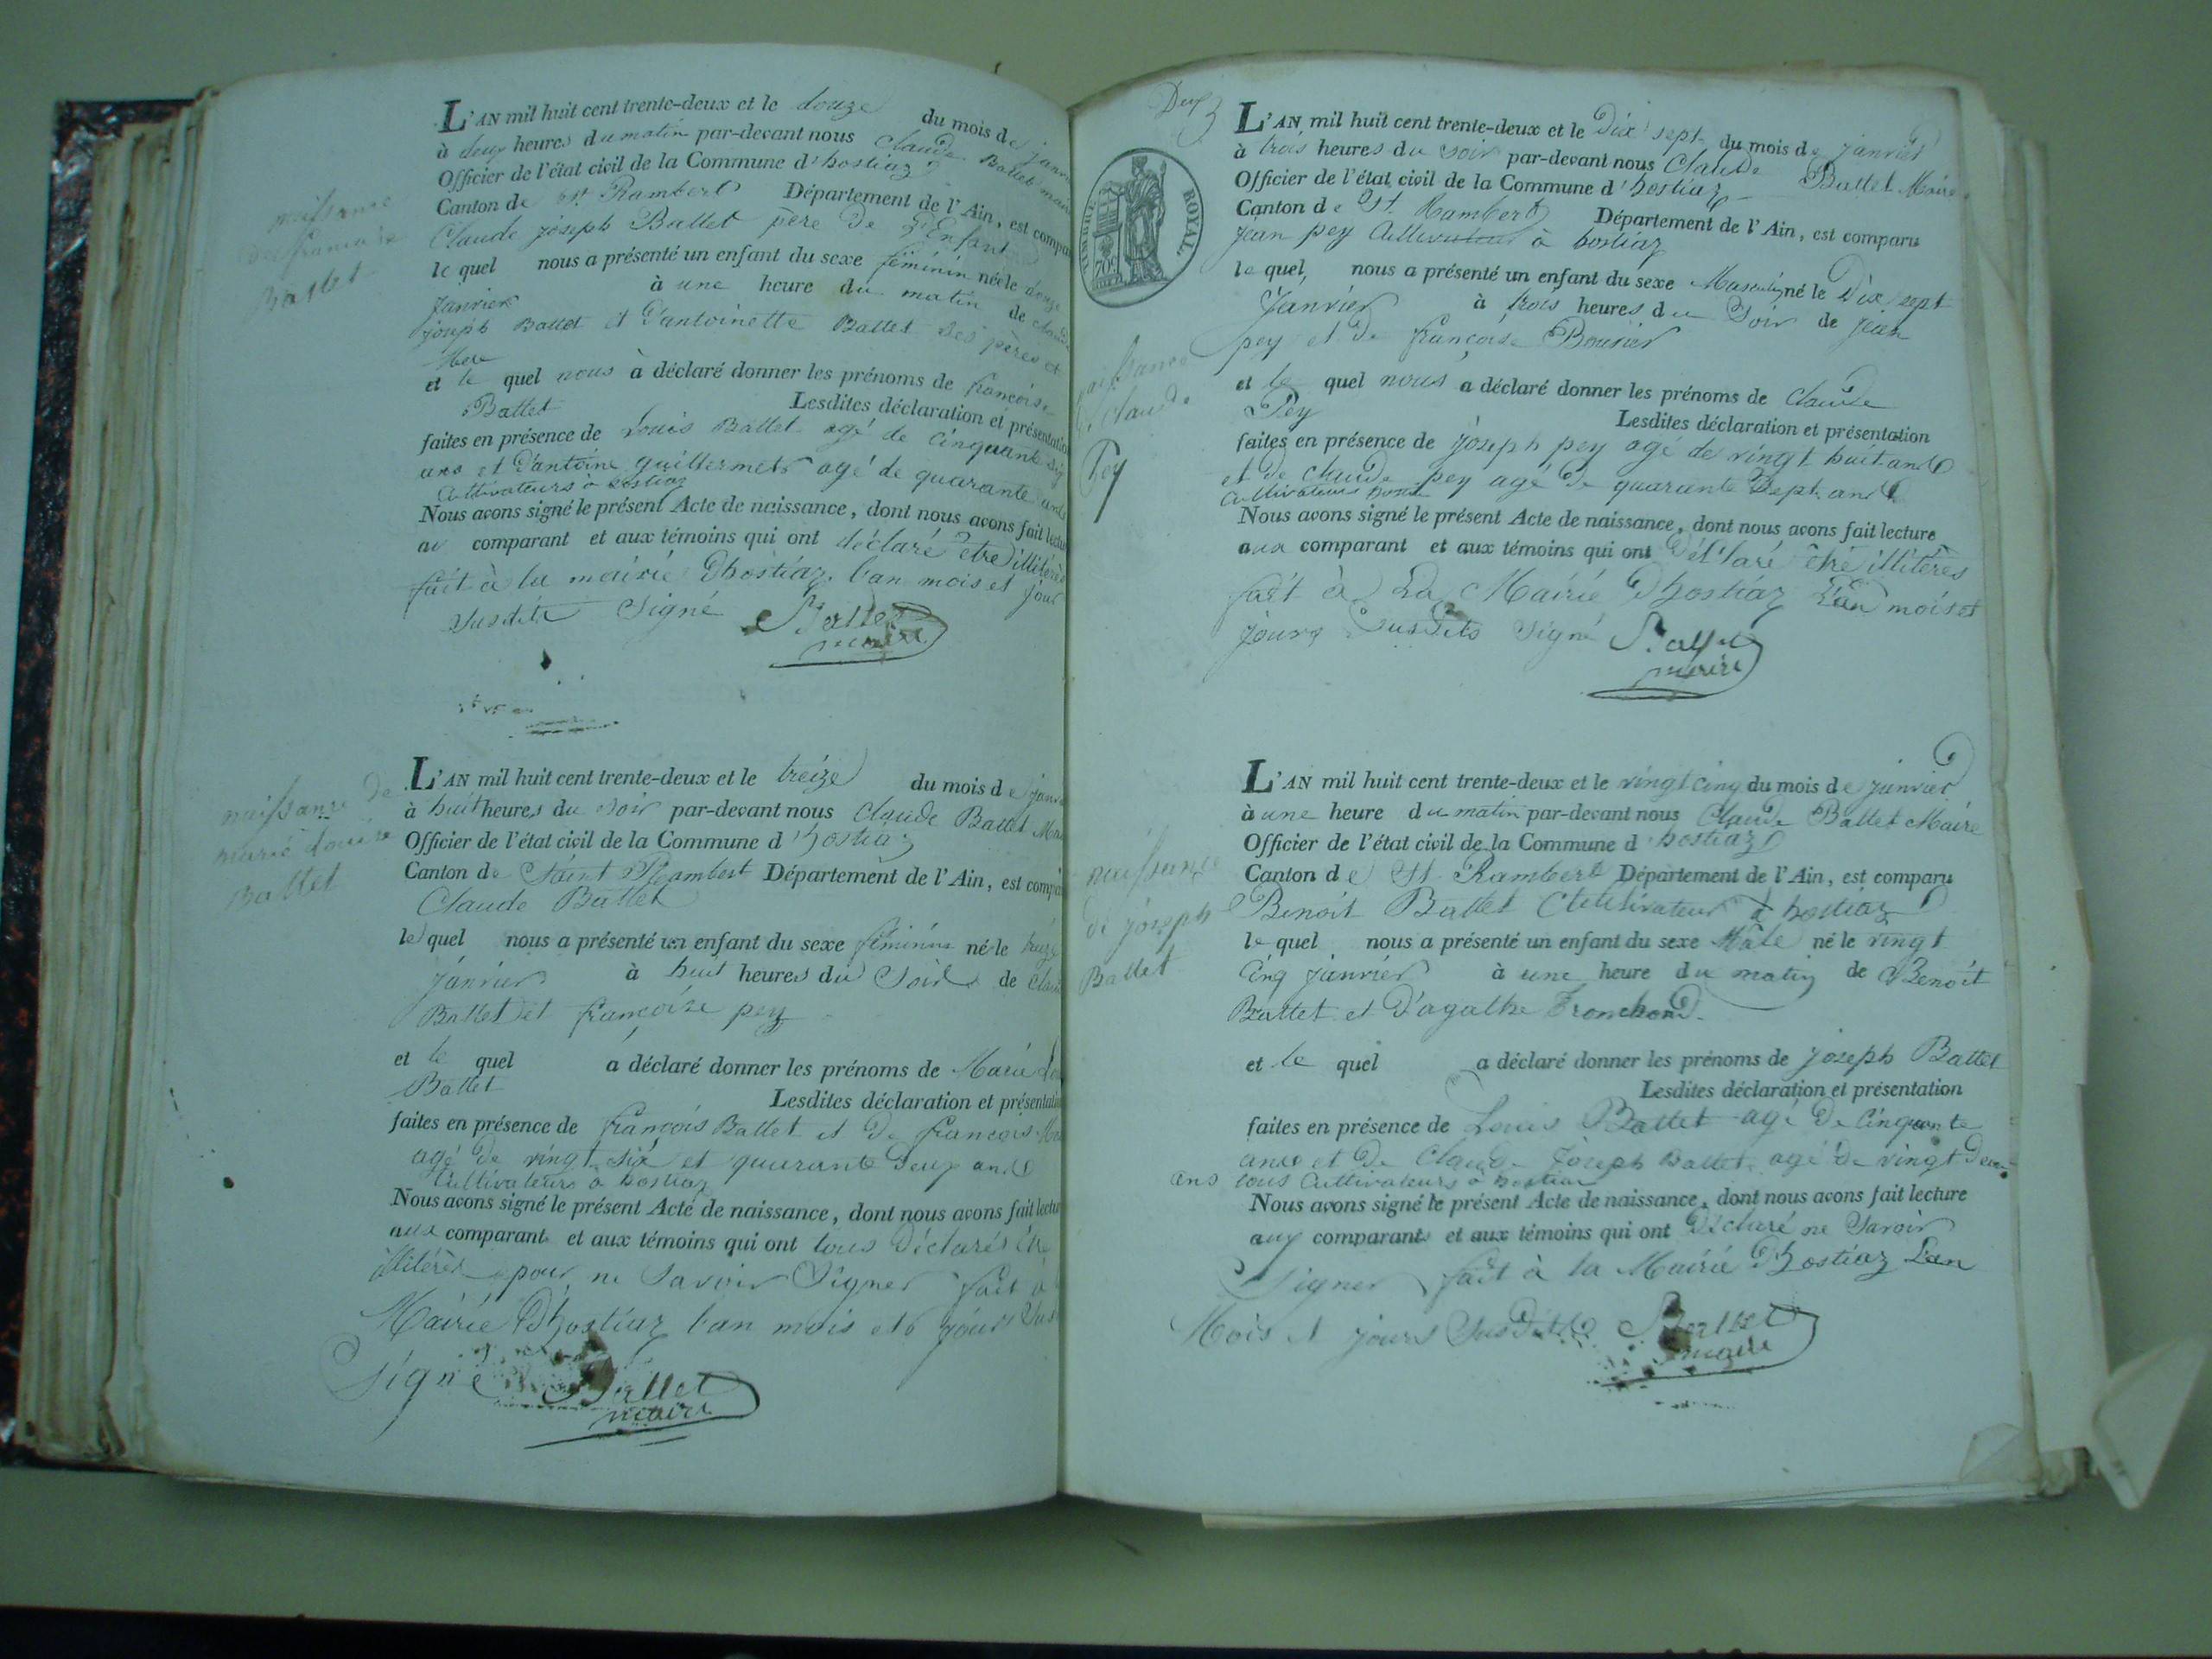 naissance
de françoise
Ballet
L'AN mil huit cent trente-deux et le douze du mois de janv
à deux heures du matin par-devant nous Claude Ballet maire
Officier de l'état civil de la Commune d'hostiaz
Canton de St Rambert Département de l'Ain, est compa
Claude joseph Ballet père de l'Enfant
le quel nous a présenté un enfant du sexe féminin né le douze
Janvier à une heure du matin de Claude
joseph Ballet et D'antoinette Ballet ses pères et
Mere
et le quel nous a déclaré donner les prénoms de françoise
Ballet Lesdites déclaration et présentation
faites en présence de Louis Ballet agé de Cinquante six
ans et D'antoine guillermet agé de quarante ans
Cultivateurs à hostiaz
Nous avons signé le présent Acte de naissance, dont nous avons fait lectu
au comparant et aux témoins qui ont déclaré être illiterès
fait à la mairie D'hostiaz l'an mois et jour
susdits Signé Ballet
maire
naissance de
marie Louise
Ballet
L'AN mil huit cent trente-deux et le treize du mois de janv
à huit heures du soir par-devant nous Claude Ballet Mai
Officier de l'état civil de la Commune d'hostiaz
Canton de Saint Rambert Département de l'Ain, est compa
Claude Ballet
lequel nous a présenté un enfant du sexe féminin né le treize
janvier à huit heures du Soir de Clau
Ballet et françoise pey
et le quel a déclaré donner les prénoms de Marie Lou
Ballet Lesdites déclaration et présentation
faites en présence de françois Ballet et de françois
agé de vingt six et quarante Deux ans
Cultivateurs à hostiaz
Nous avons signé le présent Acte de naissance, dont nous avons fait lectu
aux comparants et aux témoins qui ont tous Déclarés être
illitérès pour ne Savoir Signer fait à
Mairie D'hostiaz l'an mois et jour Sus
Signé Ballet
maire
Deux
TIMBRE ROYAL
70c
naissance
de Claude
Pey
L'AN mil huit cent trente-deux et le Dix sept du mois de janvier
à trois heures du soir par-devant nous Claude Ballet Maire
Officier de l'état civil de la Commune d'hostiaz
Canton de St. Rambert Département de l'Ain, est comparu
Jean pey Cultivateur à hostiaz
le quel nous a présenté un enfant du sexe Masculin né le Dix sept
Janvier à trois heures du Soir de jean
pey et de françoise Bourier
et le quel nous a déclaré donner les prénoms de Claude
Pey Lesdites déclaration et présentation
faites en présence de joseph pey agé de vingt huit ans
et de Claude pey agé de quarante Sept ans
Cultivateurs
Nous avons signé le présent Acte de naissance, dont nous avons fait lecture
aux comparant et aux témoins qui ont Déclaré être illitérès
fait à La Mairie D'hostiaz L'an mois et
jours susdits Signé Ballet
maire
naissance
de joseph
Ballet
L'AN mil huit cent trente-deux et le vingt cinq du mois de janvier
à une heure du matin par-devant nous Claude Ballet Maire
Officier de l'état civil de la Commune d'hostiaz
Canton de St Rambert Département de l'Ain, est comparu
Benoit Ballet Cultivateur à hostiaz
le quel nous a présenté un enfant du sexe Mâle né le vingt
Cinq janvier à une heure du matin de Benoit
Ballet et D'agathe Tronchond
et le quel a déclaré donner les prénoms de joseph Ballet
Lesdites déclaration et présentation
faites en présence de Louis Ballet agé de Cinquante
ans et de Claude Joseph Ballet agé de vingt deux
ans tous Cultivateurs à hostiaz
Nous avons signé le présent Acte de naissance, dont nous avons fait lecture
aux comparants et aux témoins qui ont Déclaré ne Savoir
Signer fait à la Mairie D'hostiaz L'an
Mois et jours Susdits Ballet
maire